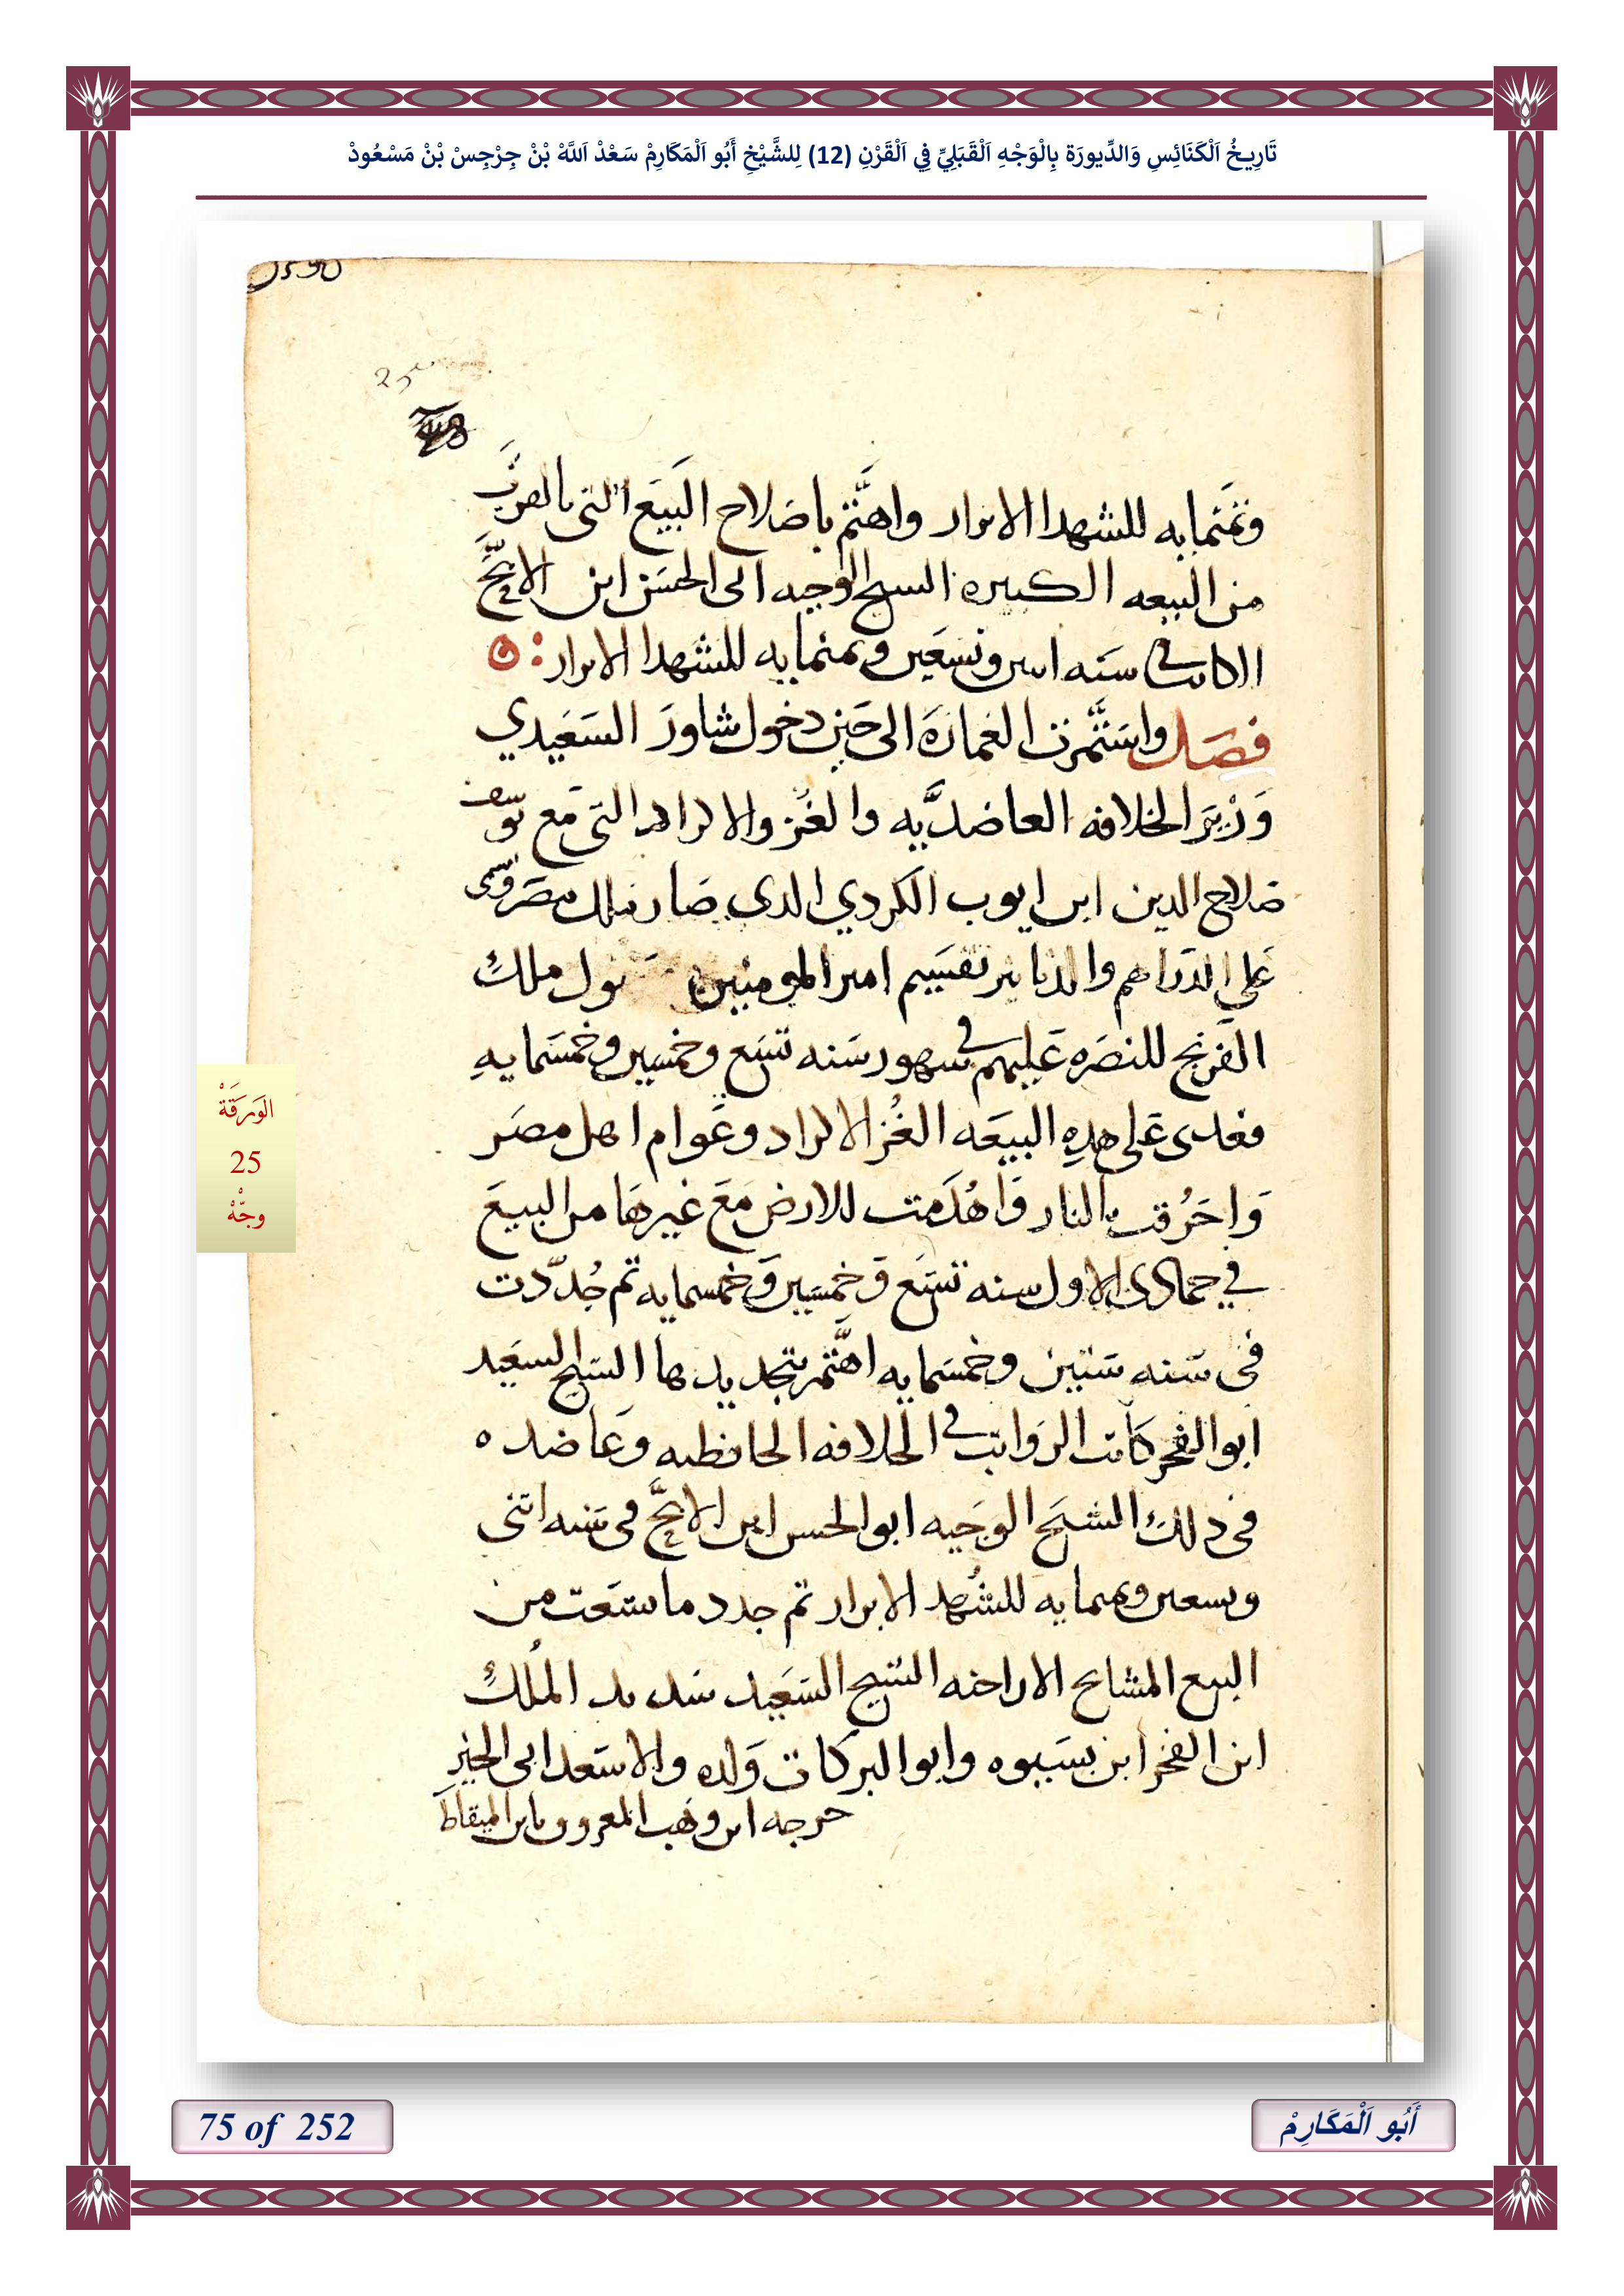 تَارِيخُ اَلْكَنَائِسِ وَالدِّيورَة بِالْوَجْهِ اَلْقَبَلِيِّ فِي اَلْقَرْنِ (12) لِلشَّيْخِ أَبُو اَلْمَكَارِمْ سَعْدْ اَللَّهْ بْنْ جِرْجِسْ بْنْ مَسْعُودْ
25
وثمنمايه للشهدا الابرار واهتم باصلاح البيع التى بالقرب
من البيعه الكبيره الشيخ الوجيه ابى الحسن ابن الامح
الكاتب فى سنه اثنين وتسعين وثمنمايه للشهدا الابرار
فصل واستمرت العماره الى حين دخول شاور السعيدي
وزير الخلافه العاضديه والغز والاكراد التى مع يوسف
صلاح الدين ابن ايوب الكردي الدى صار ملك مصر وسمى
على الدراهم والدنانير تقسيم امير المومنين ملك
الفرنج للنصره عليهم فى شهور سنه تسع وخمسين وخمسمايه
فعدى على هده البيعه الغز الاكراد وعوام اهل مصر
واحرقت بالنار واهدمت للارض مع غيرها من البيع
في جمادى الاول سنه تسع وخمسين وخمسمايه تم جددت
فى سنه ستين وخمسمايه اهتم بتجديدها الشيخ السعيد
ابو الفخر كاتب الرواتب فى الخلافه الحافظيه وعاضده
فى دلك الشيخ الوجيه ابو الحسن ابن الامح فى سنه اتنى
وتسعين وثمنمايه للشهد الابرار تم جدد ما سعت من
البيع المشايخ الاراخنه الشيخ السعيد سديد الملك
ابن الفخر ابن بسيوه وابو البركات ولده والاسعد ابى الخير
جرجه ابن وهب المعروف بابن الميقاط
الوَرَقَةْ
25
وجْهْ
75 of 252
أَبُو اَلْمَكَارِمْ